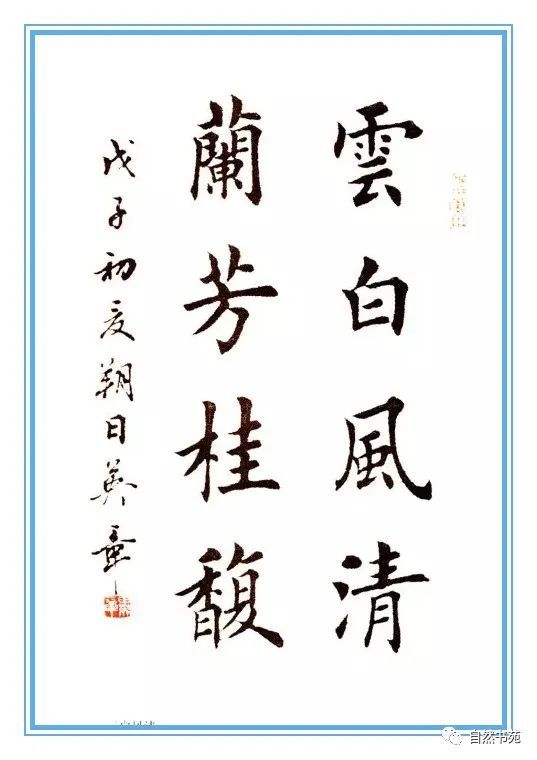 雲白風清
蘭芳桂馥
戊子初夏朔日英章
自然书苑